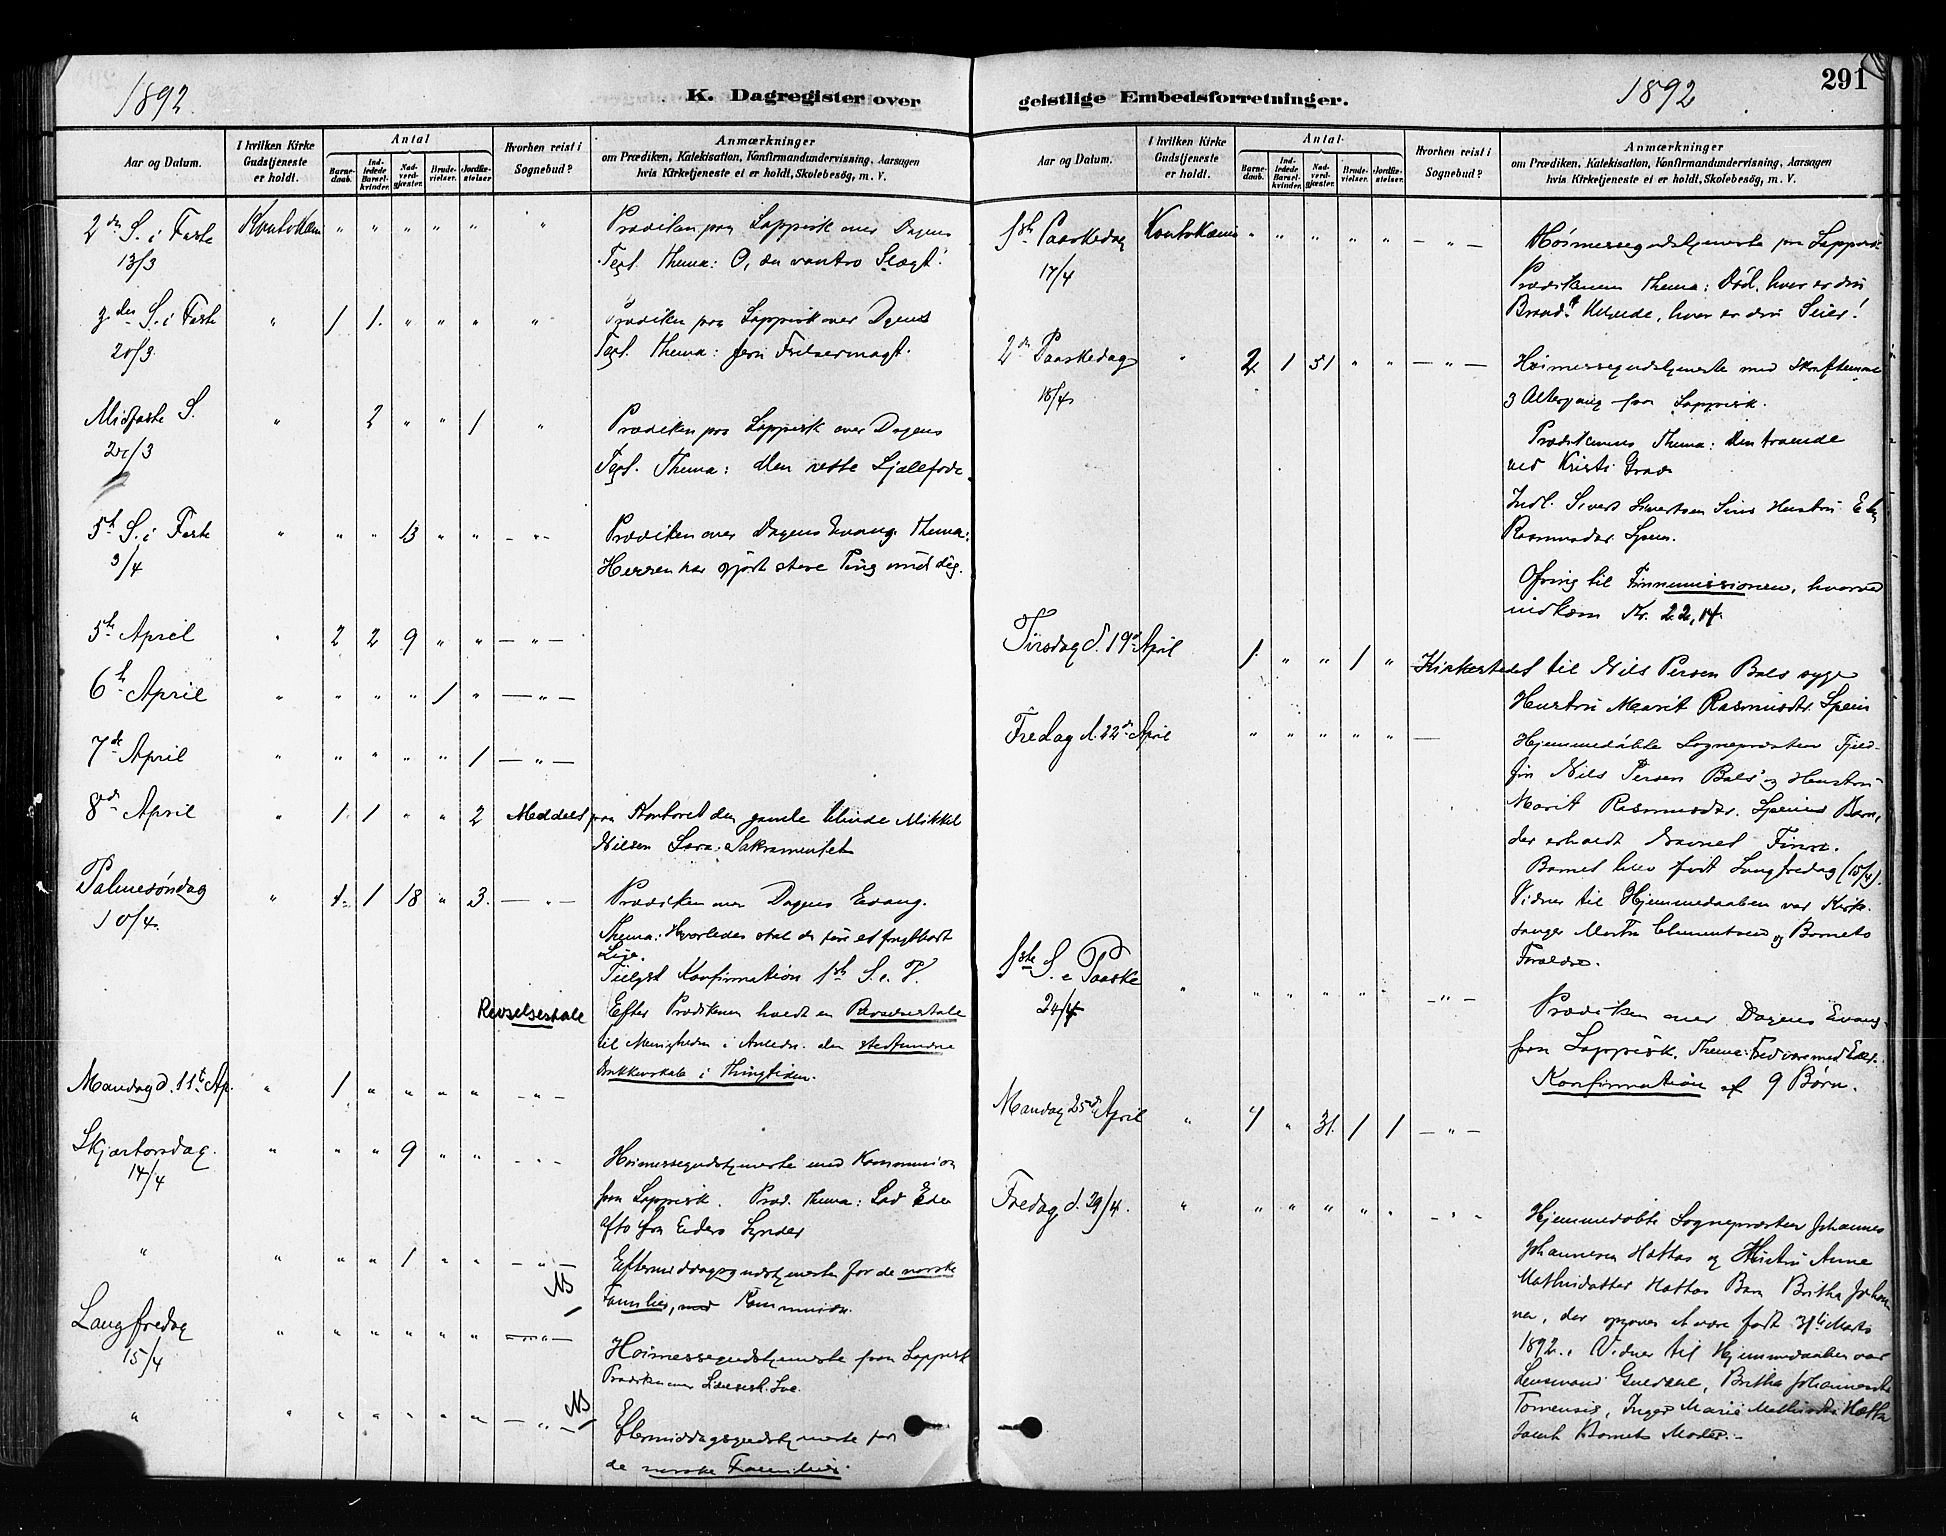 1892.
K. Dagregister over
Aar og Datum.
I hvilken Kirke Gudstjeneste er holdt.
Antal
Barne-daab.
Ind-ledede Barsel-kvinder.
Nad-verd-gjæster.
Brude-vielser.
Jordfæ-stelser.
Hvorhen reist i Sognebud?
Anmærkninger
om Prædiken, Katekisation, Konfirmandundervisning, Aarsagen
hvis Kirketjeneste ei er holdt, Skolebesög, m. V.
2den S. i Faste Koutokeino " " " " " " Prædiken paa Lappisk over Dagens
13/3 Text. Thema: O, du vantro Slægt!
3die S. i Faste " 1 1. " " " " Prædiken paa Lappisk over Dagens
20/3. Text. Thema: Jesu Frelsermagt.
Midfaste S. " 2 " " 1 " Prædiken paa Lappisk over Dagens
/3 Text. Thema: Den rette Sjæleføde.
5te S. i Faste " " " 13 " " — " — Prædiken over Dagens Evang. Thema:
3/4 Herren har gjort store Ting mod dig.
5te April " 2 2 9 " " — " —
6te April " " " " 1 " — " —
7de April " " " " " 1 — " —
8de April " 1 1 " " 2 Meddelt paa Kontoret den gamle blinde Mikkel
Nilsen Sara: Sakramentet
Palmesöndag " 1. 1 18 " 3. — " — Prædiken over Dagens Evang.
10/4. Thema: Hvorledes skal du före et frygtbart
Liv.
Tillyst Konfirmation 1ste S. e. P.
Revselsestale Efter Prædikenen holdt en Revselsestale
til Menigheden i Anledn. den stedfundne
Drukkenskab i Thingtiden.
Mandag d. 11te Ap. " 1 " " " " — " —
Skjærtorsdag. " " " 9 " " — " — Höimessegudstjeneste med Kommunion
14/4 paa Lappisk. Præd. Thema: Lad Eder
afto fra Eders Synder
" " " " 1 " " — " — Eftermiddagsgudstjeneste for de norske
NB Familier, med Kommunion.
Langfredag " " " " " " — " — Höimessegudstjeneste paa Lappisk
15/4 Prædiken over
" " " " " " " — " — NB Eftermiddagsgudstjeneste for
de norske Familier.
geistlige Embedsforretninger.
1892
291
Aar og Datum.
I hvilken Kirke Gudstjeneste er holdt.
Antal
Barne-daab.
Ind-ledede Barsel-kvinder.
Nad-verd-gjæster.
Brude-vielser.
Jordfæ-stelser.
Hvorhen reist i Sognebud?
Anmærkninger
om Prædiken, Katekisation, Konfirmandundervisning, Aarsagen
hvis Kirketjeneste ei er holdt, Skolebesög, m. V.
1ste Paaskedag Koutokeino " " " " " — " — Höimessegudstjeneste paa Lappisk.
17/4 Prædikenens Thema: Död, hvor er din
Brod? Helvede, hvor er din Seier!
2den Paaskedag " 2 1 51 " " — " — Höimessegudstjeneste med Skriftemaal
18/4 & Altergang paa Lappisk.
Prædikenens Thema: Den troende
ved Kristi Grav
Indl. Sivert Sivertsen Hustru
Rasmusdtr. Spein.
Ofring til Finnemissionen, hvorved
indkom Kr. 22,14.
Tirsdag d. 19de April 1. " " 1 " Kirkestedet til Nils Persen Bals syge
Hustru Marit Rasmusdtr. Spein
Fredag d. 22de April " " " " " — Hjemmedöbte Sognepræsten Fjeld-
fin Nils Persen Bals' og Hustru
Marit Rasmusdtr. Speins Barn,
der erholdt Navnet
Barnet blev födt Langfredag (15/4).
Vidner til Hjemmedaaben var Kirke-
sanger Clementsen og Barnets
Forældre.
1ste S. e. Paaske " " " " " " — " — Prædiken over Dagens Evang.
24/4 paa Lappisk. Thema: Fred være med Eder.
Konfirmation af 9 Börn.
Mandag 25de April " 4 " 31. 1 1 — " —
Fredag d. 29/4. " " " " " " — " — Hjemmedöbte Sognepræsten Johannes
Johannesen Hættas og Hustru Anne
Mathisdatter Hættas Barn Britha Johan-
ne, der opgaves at være födt 31te Marts
1892. Vidner til Hjemmedaaben var
Lensmand Britha Johannesdtr
Tornensis, Inger Marie Mathisdtr Hætta
samt Barnets Moder. -